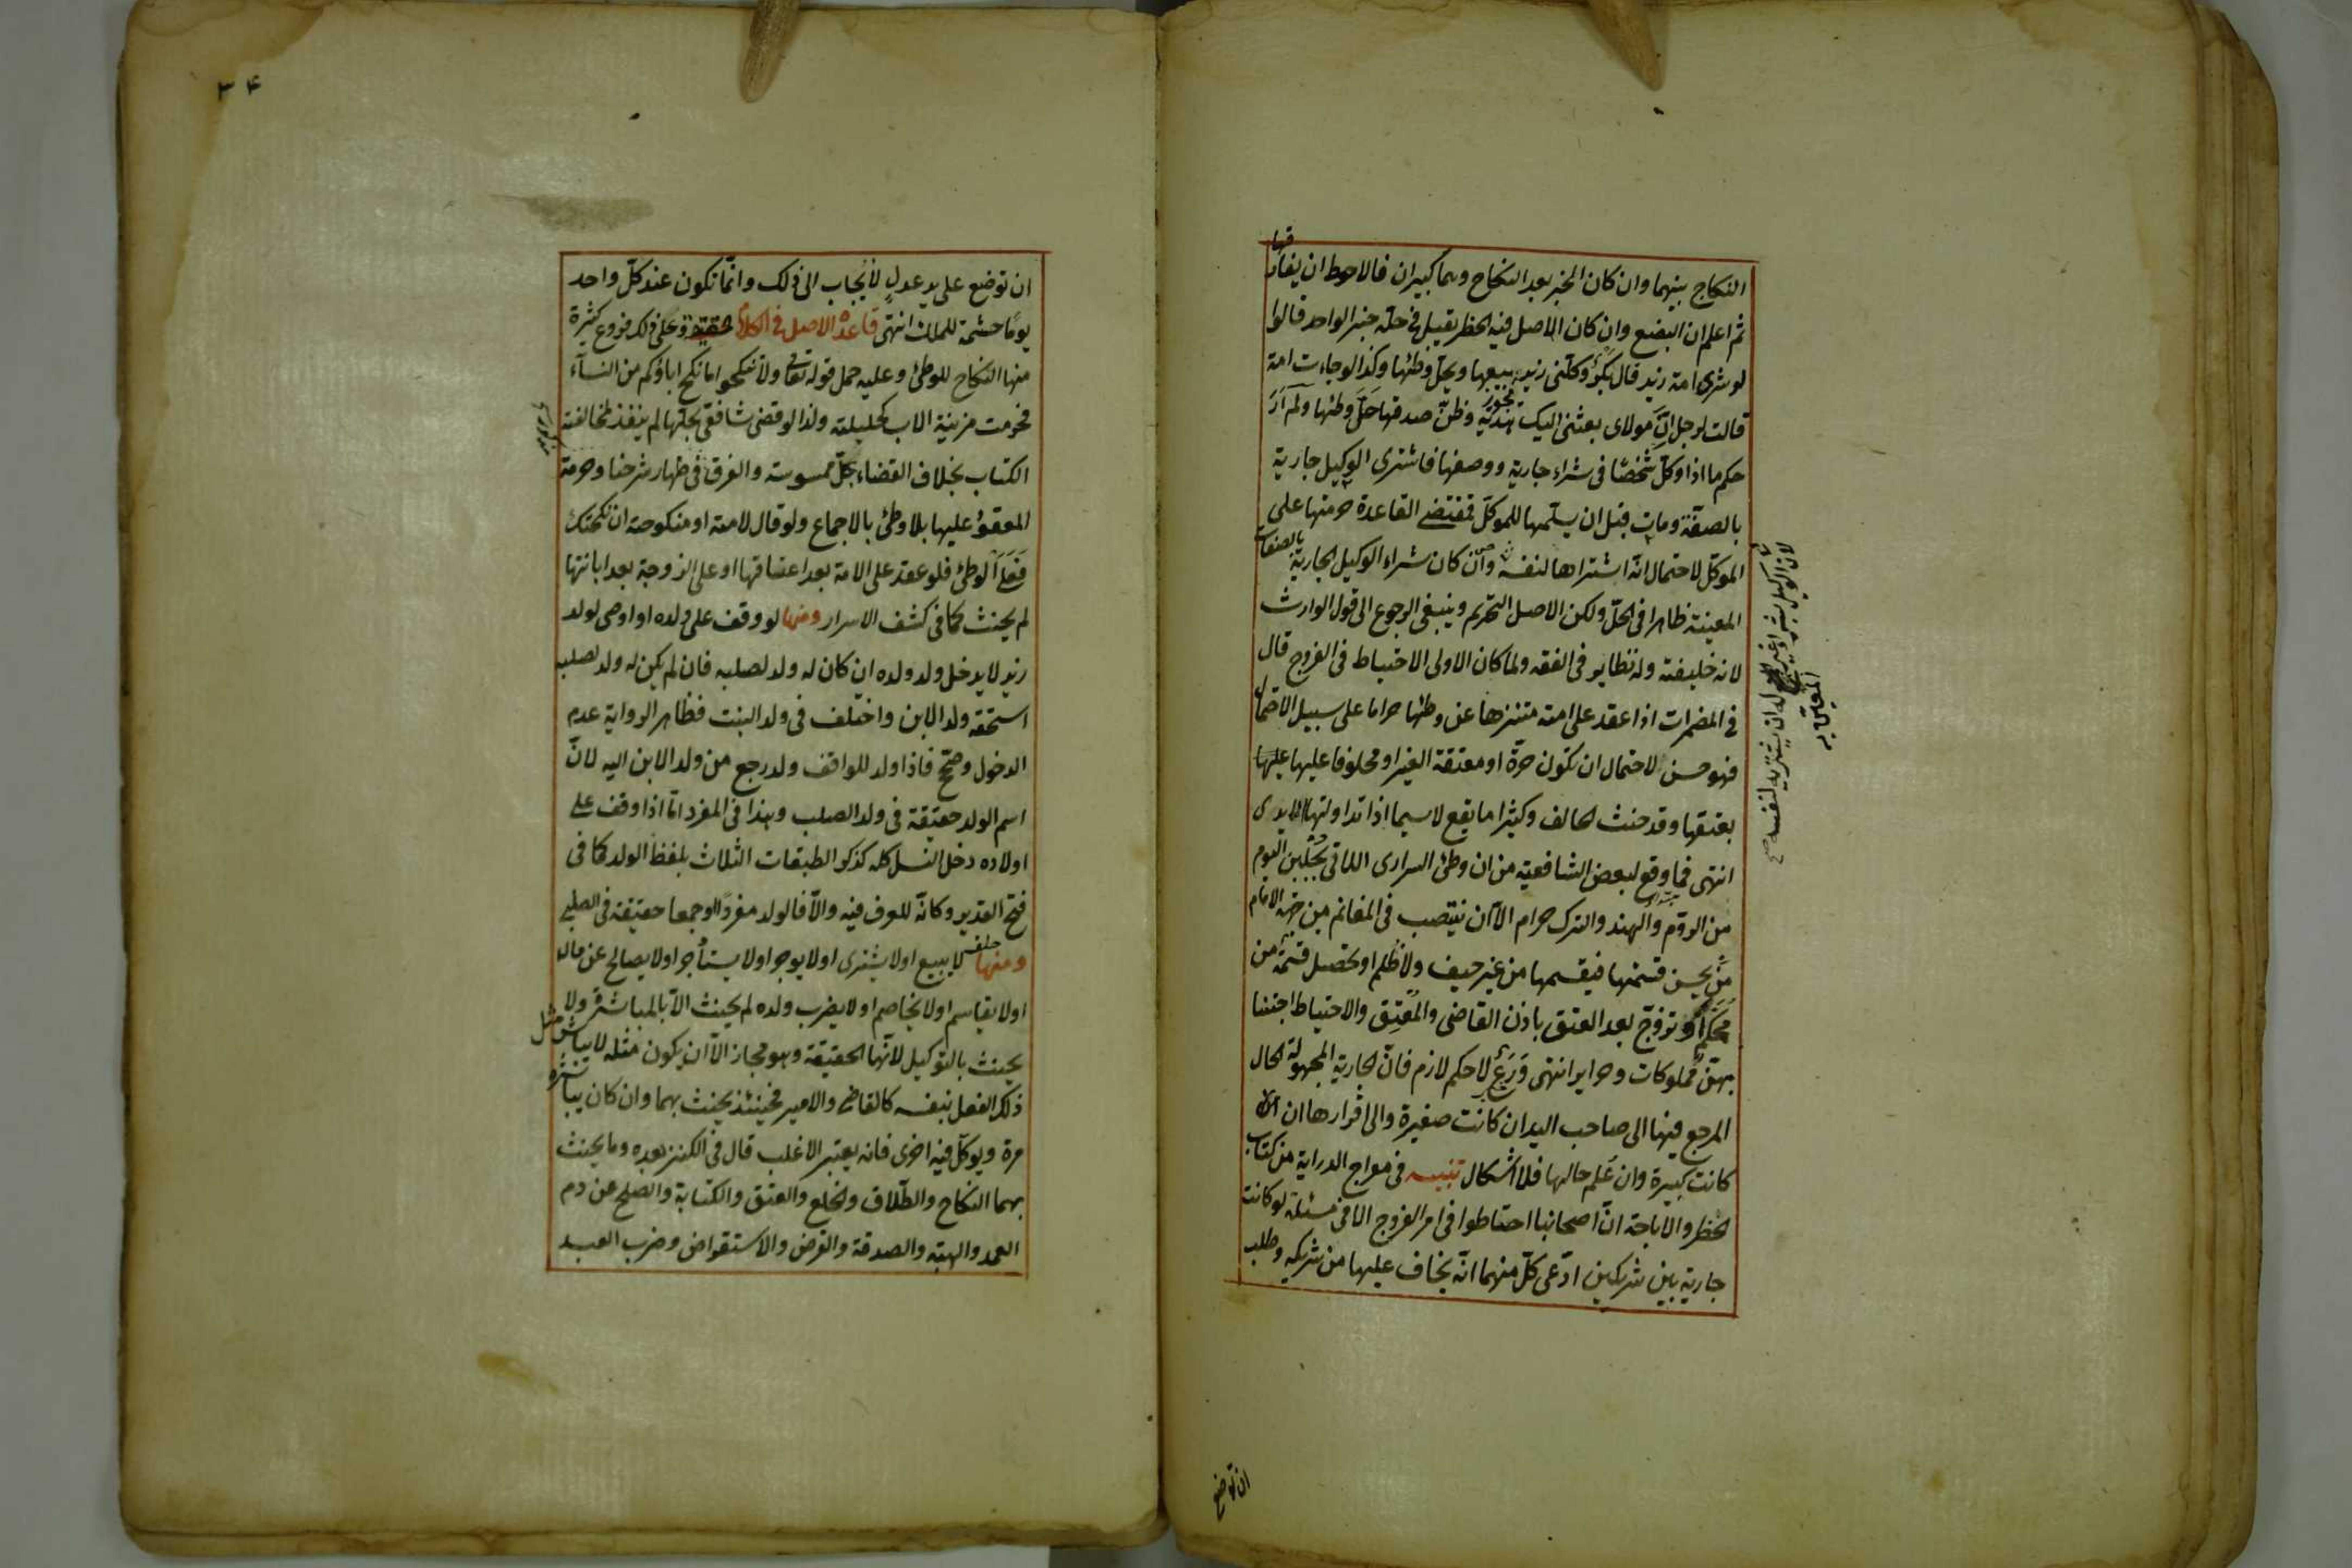 النكاح بينهما وان كان الخبر بعد النكاح وهما كبيران فالاحوط ان يفارقها
ثم اعلم ان البضع وان كان الاصل فيه الحظر يقبل في حله خبر الواحد قالوا
لو شرى امة زيد قال بكر وكلنى زيد ببيعها ويحل وطئها وكذا لو جاءت امة
قالت لرجل ان مولاى بعثنى اليك هدية وظن صدقها حل وطئها ولم أر
حكم ما اذا وكل شخصا فى شراء جارية ووصفها فاشترى الوكيل جارية
بالصفة ومات قبل ان يسلمها للموكل فمقتضى القاعدة حرمتها على
الموكل لاحتمال انه اشتراها لنفسه وان كان شراء الوكيل الجارية بالصفات
المعينة ظاهرا فى الحل ولكن الاصل التحريم وينبغى الرجوع الى قول الوارث
لانه خليفته وله نظاير فى الفقه ولما كان الاولى الاحتياط فى الفروج قال
فى المضمرات اذا عقد على امته متنزها عن وطئها حراما على سبيل الاحتمال
فهو حسن لاحتمال ان تكون حرة او معتقة الغير او محلوفا عليها
بعتقها وقد حنث الحالف وكثيرا ما يقع لاسيما اذا تداولتها الايدى
انتهى فما وقع لبعض الشافعية من ان وطئ السرارى اللاتى يجلبن اليوم
من الروم والهند والترك حرام الا ان ينتصب فى المغانم من جهة الامام
من يحسن قسمتها فيقسمها من غير حيف ولا ظلم او تحصل قسمة من
محكم او تزوج بعد العتق باذن القاضى والمعتق والاحتياط اجتنابا
بهن مملوكات وحراير انتهى ورع لا حكم لازم فان الجارية المجهولة الحال
المرجع فيها الى صاحب اليد ان كانت صغيرة والى اقرارها ان
كانت كبيرة وان علم حالها فلا اشكال تنبيه فى معراج الدراية من كتاب
الحظر والاباحة ان اصحابنا احتاطوا فى امر الفروج الا فى مسئلة لو كانت
جارية بين شريكين ادعى كل منهما انه يخاف عليها من شريكه وطلب
ان توضع
٣٤
ان توضع على يد عدل لا يجاب الى ذلك وانما تكون عند كل واحد
يوما حشمة للملك انتهى قاعدة الاصل فى الكلام الحقيقة وعلى ذلك فروع كثيرة
منها النكاح للوطئ وعليه حمل قوله تعالى ولا تنكحوا ما نكح اباؤكم من النساء
فحرمت مزنية الاب كحليلته ولذا لو قضى شافعى بحلها لم ينفذ لمخالفة
الكتاب بخلاف القضاء بحل ممسوسته والفرق فى ظهار شرحنا وحرمة
المعقود عليها بلا وطئ بالاجماع ولو قال لامته او منكوحته ان نكحتك
فعلى الوطئ فلو عقد على الامة بعد اعتاقها او على الزوجة بعد ابانتها
لم يحنث كما فى كشف الاسرار ومنها لو وقف على ولده او اوصى لولد
زيد لا يدخل ولد ولده ان كان له ولد لصلبه فان لم يكن له ولد لصلبه
استحقه ولد الابن واختلف فى ولد البنت فظاهر الرواية عدم
الدخول وصحح فاذا ولد للواقف ولد رجع من ولد الابن اليه لان
اسم الولد حقيقة فى ولد الصلب وهذا فى المفرد اما اذا وقف على
اولاده دخل النسل كله كذكر الطبقات الثلاث بلفظ الولد كما فى
فتح القدير وكانه للعرف فيه والا فالولد مفردا او جمعا حقيقة فى الصلبى
ومنها حلف لا يبيع او لا يشترى او لا يوجر او لا يستأجر او لا يصالح عن مال
او لا يقاسم او لا يخاصم او لا يضرب ولده لم يحنث الا بالمباشرة ولا
يحنث بالتوكيل لانها الحقيقة وهو مجاز الا ان يكون مثله لا يباشر مثل
ذلك الفعل بنفسه كالقاضى والامير فحينئذ يحنث بهما وان كان يباشره
مرة ويوكل فيه اخرى فانه يعتبر الاغلب قال فى الكنز بعده وما يحنث
بهما النكاح والطلاق والخلع والعتق والكتابة والصلح عن دم
العمد والهبة والصدقة والقرض والاستقراض وضرب العبد